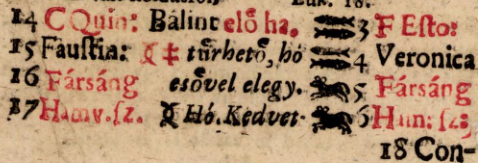 14 C Quin: Bálint elő ha. 3 F Esto:
15 Faustia: ☾ ‡ tűrhető, hó 4 Veronica
16 Fársáng esővel elegy. 5 Fársáng
17 Hamv. sz. Hó. Kedvet- 6 Ham: sz:
18 Con-